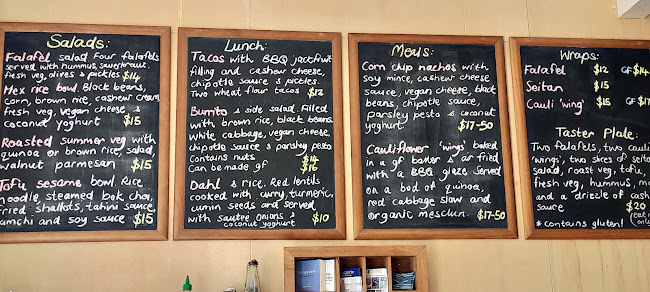 Salads:
Falafel salad four falafels
served with hummus, sauerkraut,
fresh veg, olives & pickles $14
Mex rice bowl. Black beans,
corn, brown rice, cashew cream,
fresh veg, vegan cheese &
coconut yoghurt $15
Roasted summer veg with
quinoa or brown rice, salad,
walnut parmesan $15
Tofu sesame bowl. Rice
noodle, steamed bok choi,
fried shallots, tahini sauce,
kimchi and soy sauce $15
Lunch:
Tacos with BBQ jackfruit
filling and cashew cheese,
chipotle sauce & pickles.
Two wheat flour tacos $12
Burrito & side salad. Filled
with brown rice, black beans,
white cabbage, vegan cheese,
chipotle sauce & parsley pesto
Contains nuts $14
Can be made gf $16
Dahl & rice. Red lentils
cooked with curry, turmeric,
cumin seeds and served
with sauteé onions &
coconut yoghurt $10
Meals:
Corn chip nachos with
soy mince, cashew cheese
sauce, vegan cheese, black
beans, chipotle sauce,
parsley pesto & coconut
yoghurt $17-50
Cauliflower 'wings' baked
in a gf batter & air fried
with a BBQ glaze. Served
on a bed of quinoa,
red cabbage slaw and
organic mesclun. $17-50
Wraps:
Falafel $12 GF $14
Seitan $15
Cauli 'wing' $15 GF $17
Taster Plate:
Two falafels, two cauli
'wings', two slices of seitan
salad, roast veg, tofu,
fresh veg, hummus,
and a drizzle of
sauce $20
* contains gluten! (eat in
only